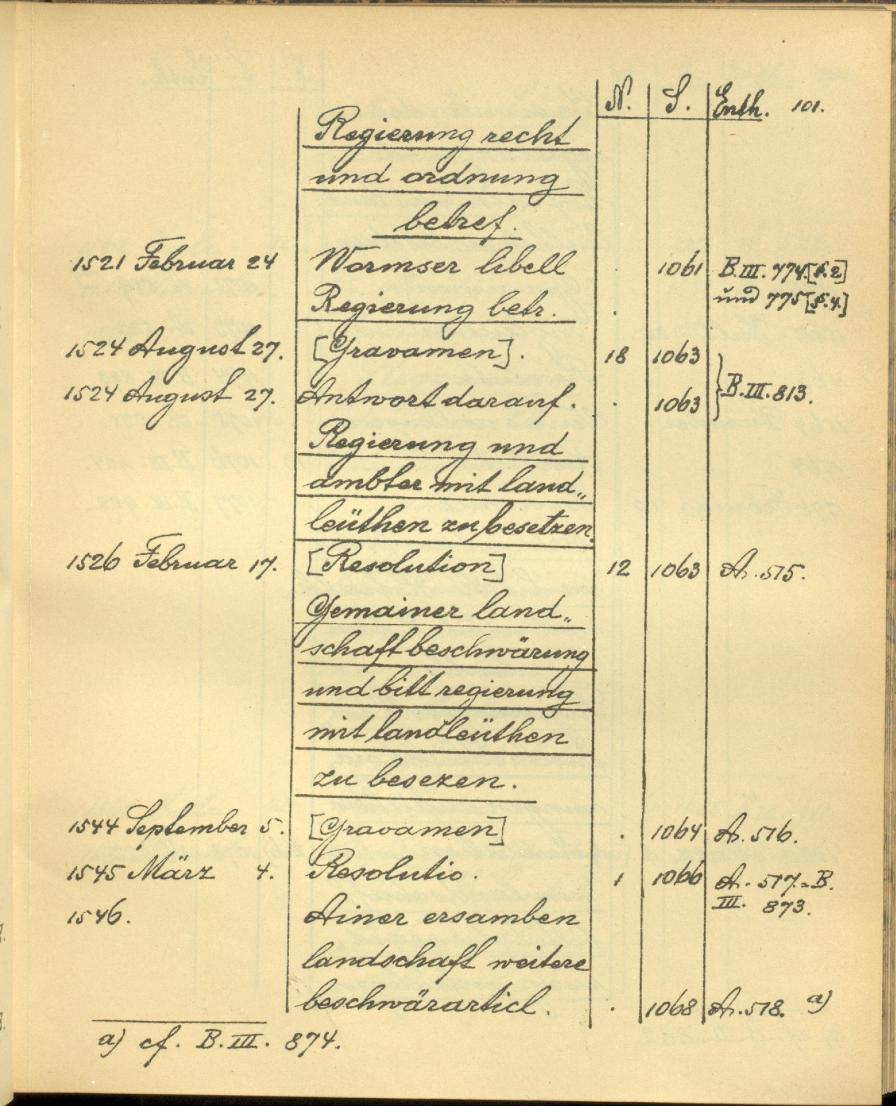 N. S. Enth. 101.
Regierung recht
und ordnung
betref.
1521 Februar 24 Wormser libell . 1061 B.III. 774[f.2]
Regierung betr. . und 775[f.4.]
1524 August 27. [Gravamen]. 18 1063
1524 August 27. Antwort darauf. . 1063 } B.III. 813.
Regierung und
ambter mit land„
leüthen zu besetzen.
1526 Februar 17. [Resolution] 12 1063 A. 515.
Gemainer land„
schaft beschwärung
und bitt regierung
mit landleüthen
zu besezen.
1544 September 5. [Gravamen] . 1064 A. 516.
1545 März 4. Resolutio. 1 1066 A. 517.=B.
III. 873.
1546. Ainer ersamben
landschaft weitere
beschwärarticl. . 1068 A. 518. a)
a) cf. B.III. 874.